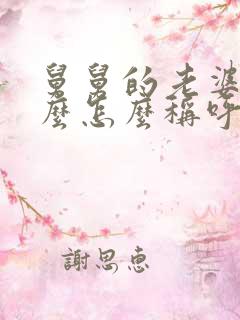 舅舅的老婆
麼怎麼稱呼
謝思惠